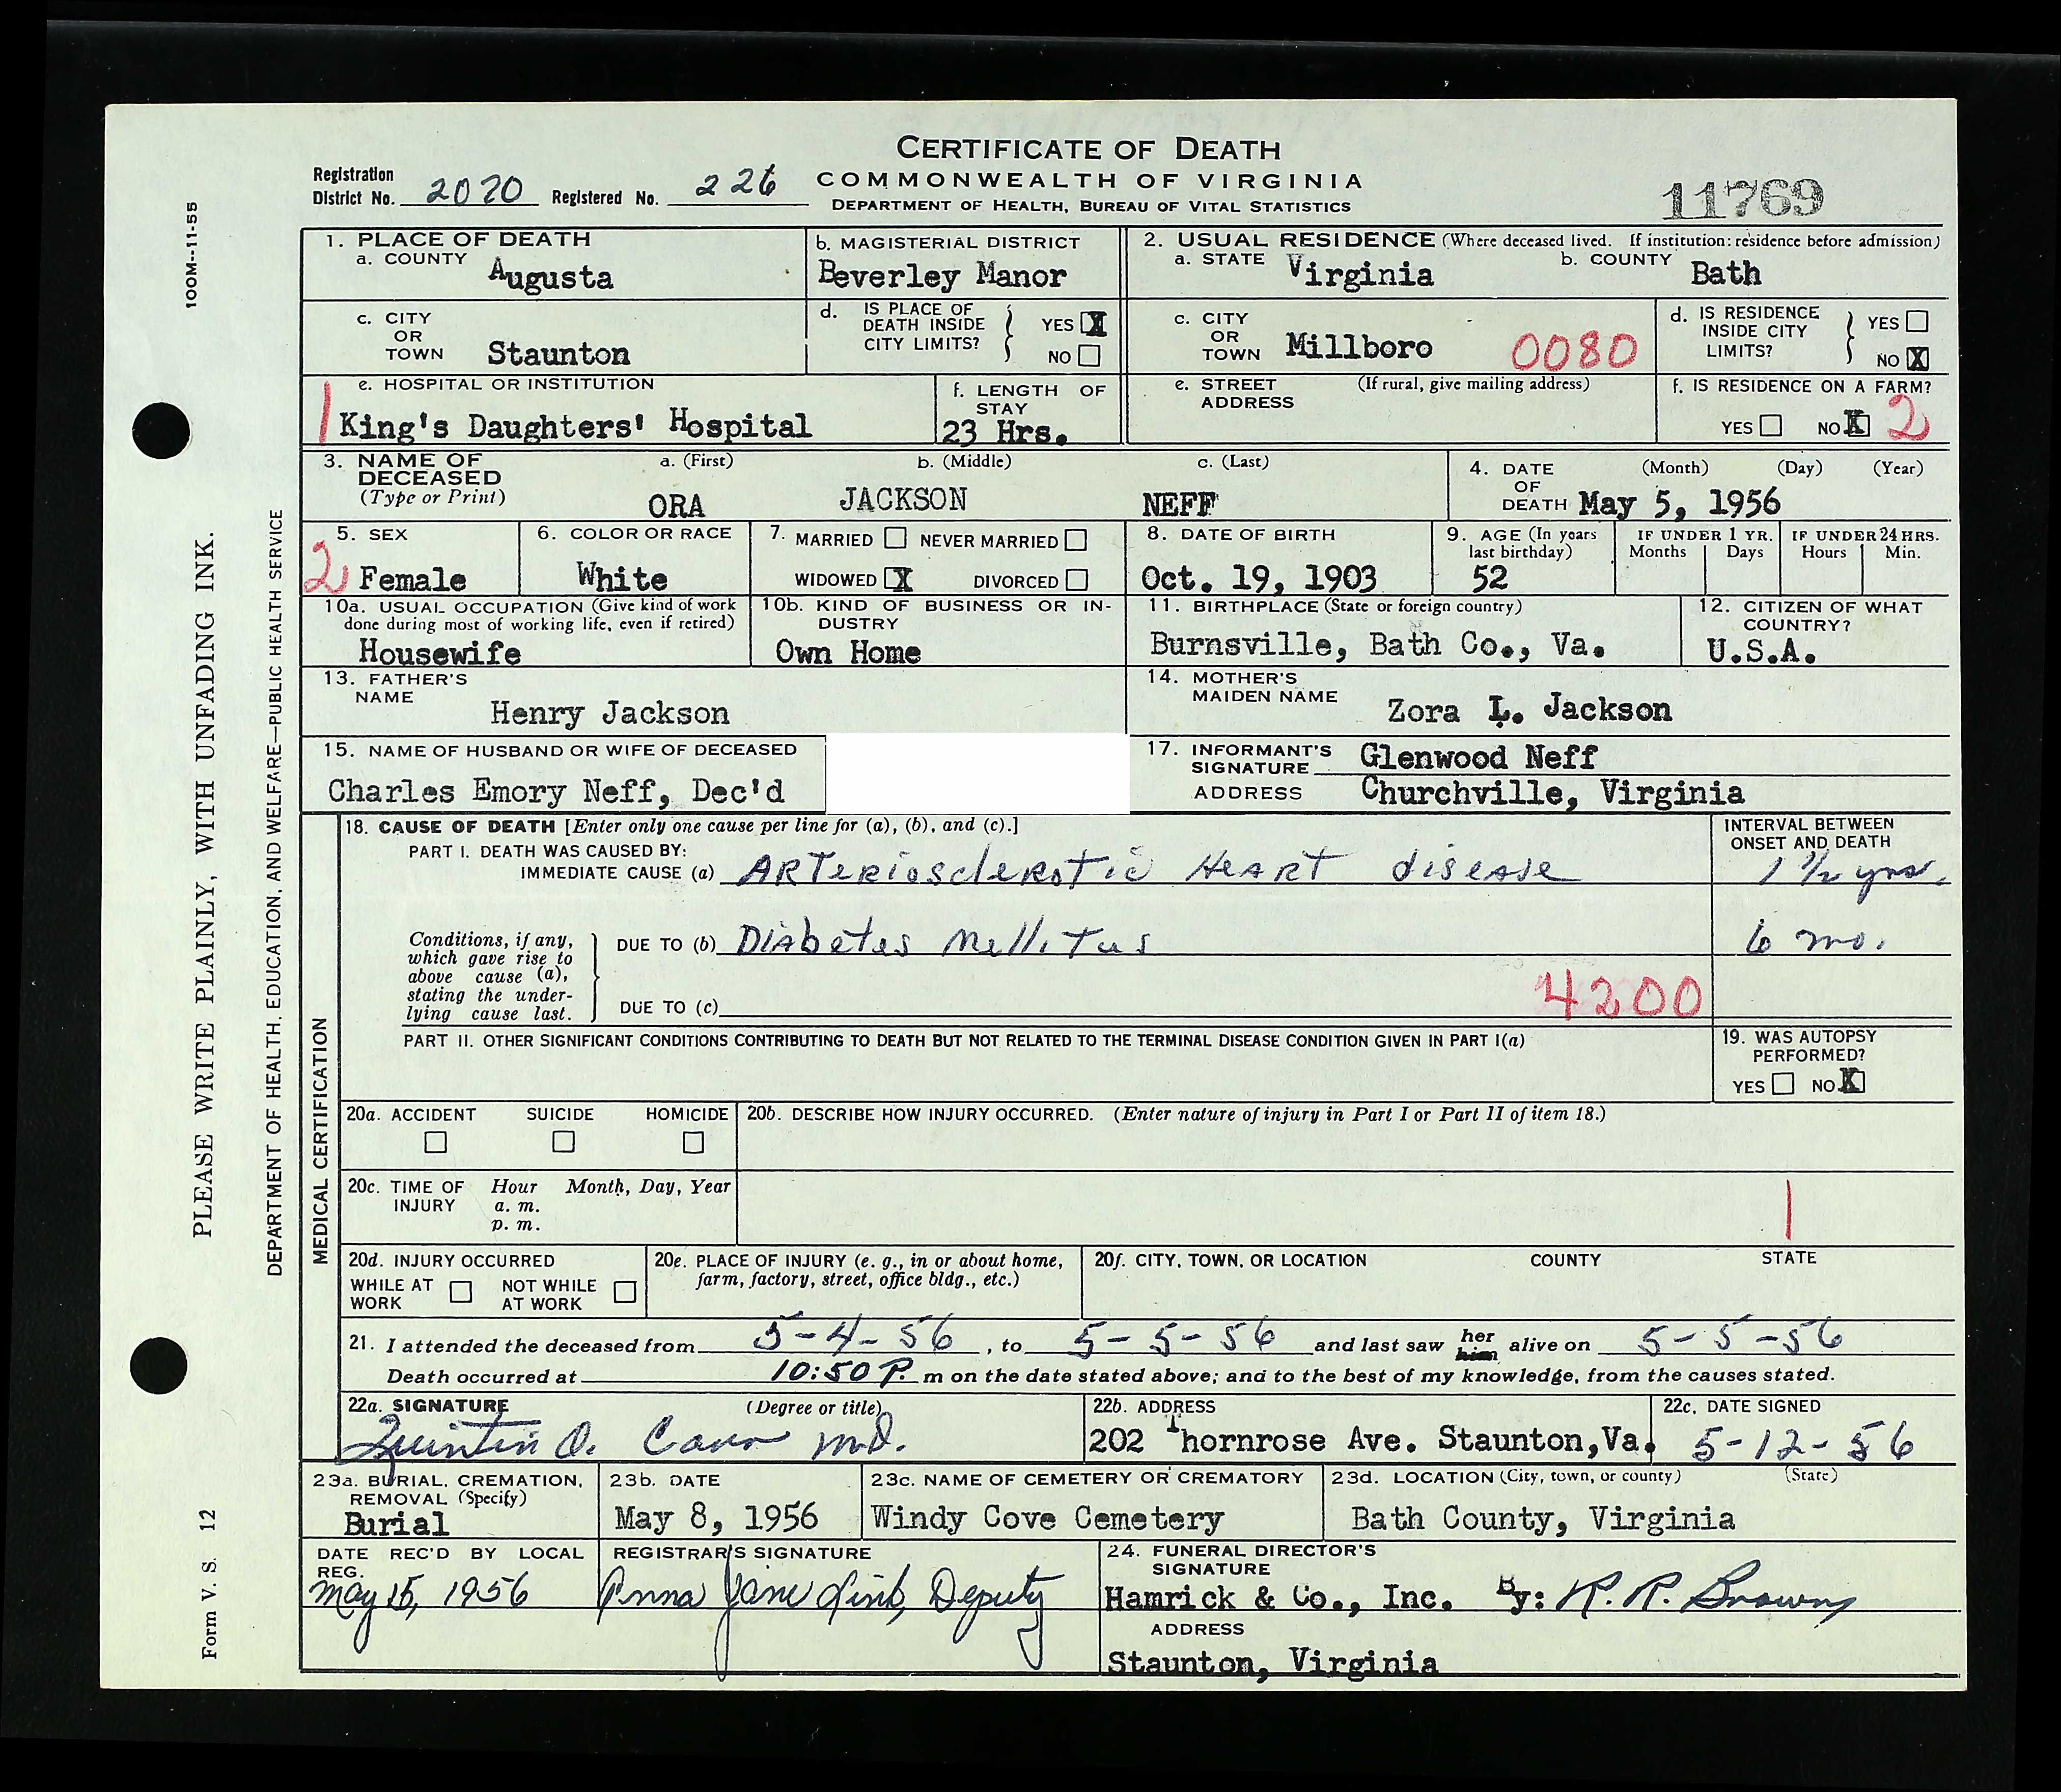 CERTIFICATE OF DEATH
COMMONWEALTH OF VIRGINIA
DEPARTMENT OF HEALTH, BUREAU OF VITAL STATISTICS
Registration District No. 2070 Registered No. 226
11769
100M--11-55
PLEASE WRITE PLAINLY, WITH UNFADING INK.
DEPARTMENT OF HEALTH, EDUCATION, AND WELFARE—PUBLIC HEALTH SERVICE
Form V. S. 12
1. PLACE OF DEATH
a. COUNTY Augusta
b. MAGISTERIAL DISTRICT
Beverley Manor
2. USUAL RESIDENCE (Where deceased lived. If institution: residence before admission)
a. STATE Virginia b. COUNTY Bath
c. CITY OR TOWN Staunton
d. IS PLACE OF DEATH INSIDE CITY LIMITS? YES X NO
c. CITY OR TOWN Millboro 0080
d. IS RESIDENCE INSIDE CITY LIMITS? YES NO X
e. HOSPITAL OR INSTITUTION
1 King's Daughters' Hospital
f. LENGTH OF STAY
23 Hrs.
e. STREET ADDRESS (If rural, give mailing address)
f. IS RESIDENCE ON A FARM?
YES NO X 2
3. NAME OF DECEASED (Type or Print)
a. (First) b. (Middle) c. (Last)
ORA JACKSON NEFF
4. DATE OF DEATH (Month) (Day) (Year)
May 5, 1956
5. SEX
2 Female
6. COLOR OR RACE
White
7. MARRIED NEVER MARRIED
WIDOWED X DIVORCED
8. DATE OF BIRTH
Oct. 19, 1903
9. AGE (In years last birthday)
52
IF UNDER 1 YR.
Months Days
IF UNDER 24 HRS.
Hours Min.
10a. USUAL OCCUPATION (Give kind of work done during most of working life, even if retired)
Housewife
10b. KIND OF BUSINESS OR INDUSTRY
Own Home
11. BIRTHPLACE (State or foreign country)
Burnsville, Bath Co., Va.
12. CITIZEN OF WHAT COUNTRY?
U.S.A.
13. FATHER'S NAME
Henry Jackson
14. MOTHER'S MAIDEN NAME
Zora L. Jackson
15. NAME OF HUSBAND OR WIFE OF DECEASED
Charles Emory Neff, Dec'd
17. INFORMANT'S SIGNATURE Glenwood Neff
ADDRESS Churchville, Virginia
MEDICAL CERTIFICATION
18. CAUSE OF DEATH [Enter only one cause per line for (a), (b), and (c).]
INTERVAL BETWEEN ONSET AND DEATH
PART I. DEATH WAS CAUSED BY:
IMMEDIATE CAUSE (a) Arteriosclerotic Heart disease 1 1/2 yrs.
Conditions, if any, which gave rise to above cause (a), stating the underlying cause last.
DUE TO (b) Diabetes Mellitus 6 mo.
DUE TO (c) 4200
PART II. OTHER SIGNIFICANT CONDITIONS CONTRIBUTING TO DEATH BUT NOT RELATED TO THE TERMINAL DISEASE CONDITION GIVEN IN PART I(a)
19. WAS AUTOPSY PERFORMED?
YES NO X
20a. ACCIDENT SUICIDE HOMICIDE
20b. DESCRIBE HOW INJURY OCCURRED. (Enter nature of injury in Part I or Part II of item 18.)
20c. TIME OF INJURY Hour Month, Day, Year
a. m.
p. m.
1
20d. INJURY OCCURRED
WHILE AT WORK NOT WHILE AT WORK
20e. PLACE OF INJURY (e. g., in or about home, farm, factory, street, office bldg., etc.)
20f. CITY, TOWN, OR LOCATION COUNTY STATE
21. I attended the deceased from 5-4-56, to 5-5-56 and last saw her him alive on 5-5-56
Death occurred at 10:50 P. m on the date stated above; and to the best of my knowledge, from the causes stated.
22a. SIGNATURE (Degree or title)
Quintin O. M.D.
22b. ADDRESS
202 Thornrose Ave. Staunton, Va.
22c. DATE SIGNED
5-12-56
23a. BURIAL, CREMATION, REMOVAL (Specify)
Burial
23b. DATE
May 8, 1956
23c. NAME OF CEMETERY OR CREMATORY
Windy Cove Cemetery
23d. LOCATION (City, town, or county) (State)
Bath County, Virginia
DATE REC'D BY LOCAL REG.
May 15, 1956
REGISTRAR'S SIGNATURE
Anna Jane Link, Deputy
24. FUNERAL DIRECTOR'S SIGNATURE
Hamrick & Co., Inc. By: R. R. Brown
ADDRESS
Staunton, Virginia